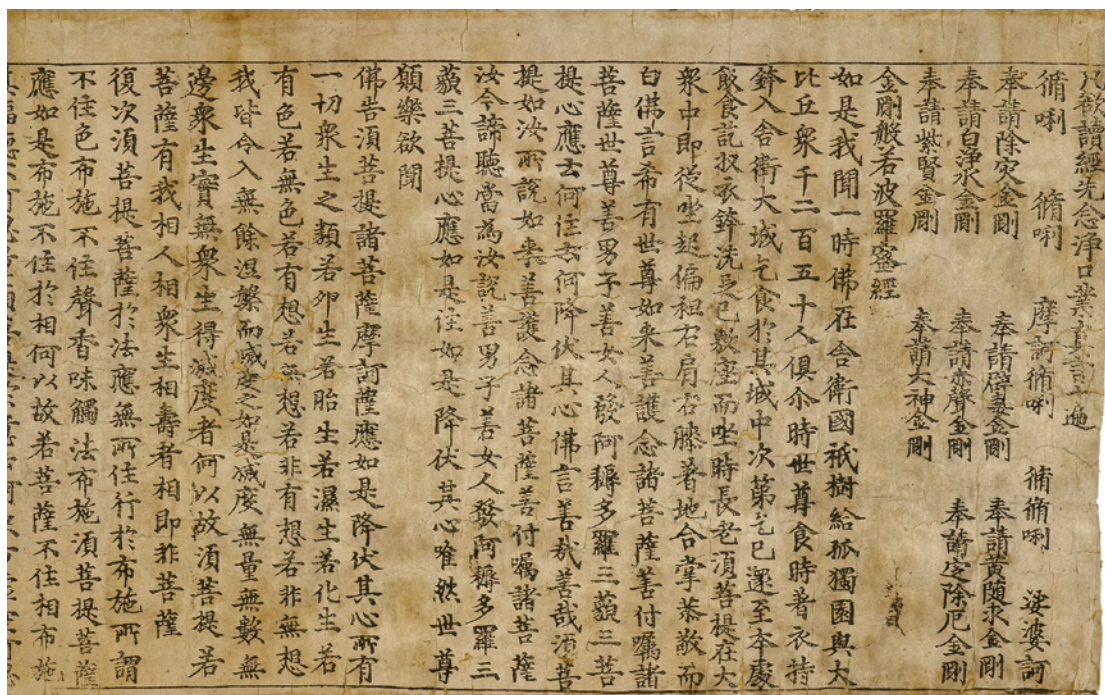 凡欲讀經先念淨口業真言一遍
脩唎 脩唎 摩訶脩唎 脩脩唎 娑婆訶
奉請除灾金剛 奉請辟毒金剛 奉請黃隨求金剛
奉請白淨水金剛 奉請赤聲金剛 奉請定除厄金剛
奉請紫賢金剛 奉請大神金剛
金剛般若波羅蜜經
如是我聞一時佛在舍衛國祇樹給孤獨園與大
比丘衆千二百五十人俱尒時世尊食時著衣持
鉢入舍衛大城乞食於其城中次第乞已還至本處
飯食訖収衣鉢洗足已敷座而坐時長老須菩提在大
衆中即從坐起偏袒右肩右膝著地合掌恭敬而
白佛言希有世尊如来善護念諸菩薩善付囑諸
菩薩世尊善男子善女人發阿耨多羅三藐三菩
提心應云何住云何降伏其心佛言善哉善哉須菩
提如汝所說如来善護念諸菩薩善付囑諸菩薩
汝今諦聽當為汝說善男子善女人發阿耨多羅三
藐三菩提心應如是住如是降伏其心唯然世尊
願樂欲聞
佛告須菩提諸菩薩摩訶薩應如是降伏其心所有
一切衆生之類若卵生若胎生若濕生若化生若
有色若無色若有想若無想若非有想若非無想
我皆令入無餘涅槃而滅度之如是滅度無量無數無
邊衆生實無衆生得滅度者何以故須菩提若
菩薩有我相人相衆生相壽者相即非菩薩
復次須菩提菩薩於法應無所住行於布施所謂
不住色布施不住聲香味觸法布施須菩提菩薩
應如是布施不住於相何以故若菩薩不住相布施